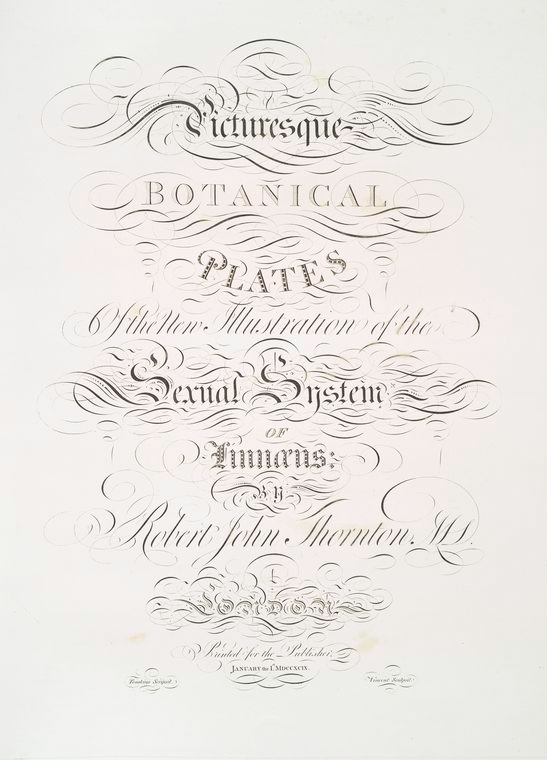 Picturesque
BOTANICAL
PLATES
Of the New Illustration of the
Sexual System
OF
Linnæus:
By
Robert John Thornton. M.D.
LONDON
Printed for the Publisher,
JANUARY the 1st MDCCXCIX.
Tomkins Scripsit. Vincent Sculpsit.